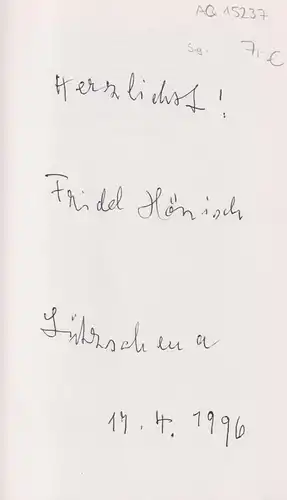 AQ 15237
sg. 7,- €
Herzlichst!
Fridel Hönisch
Lützschena
17. 4. 1996